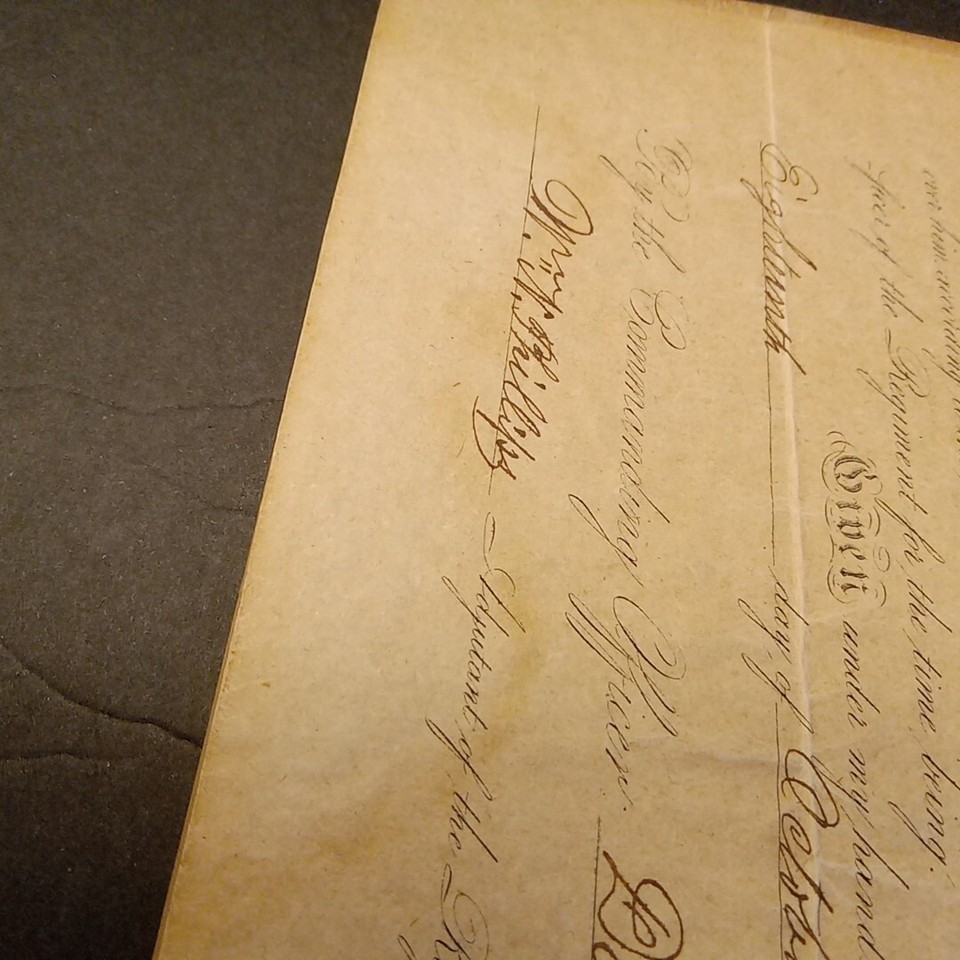 officer of the Regiment for the time being.
Given under my hand
Eighteenth day of Octob
By the Commanding Officer.
Phillips Adjutant of the